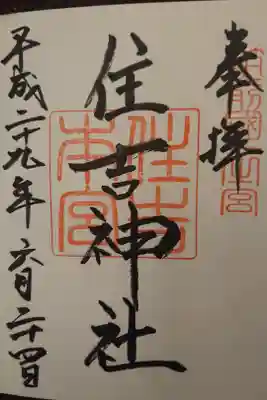 奉拝
住吉神社
平成二十九年六月二十四日
住吉
本宮